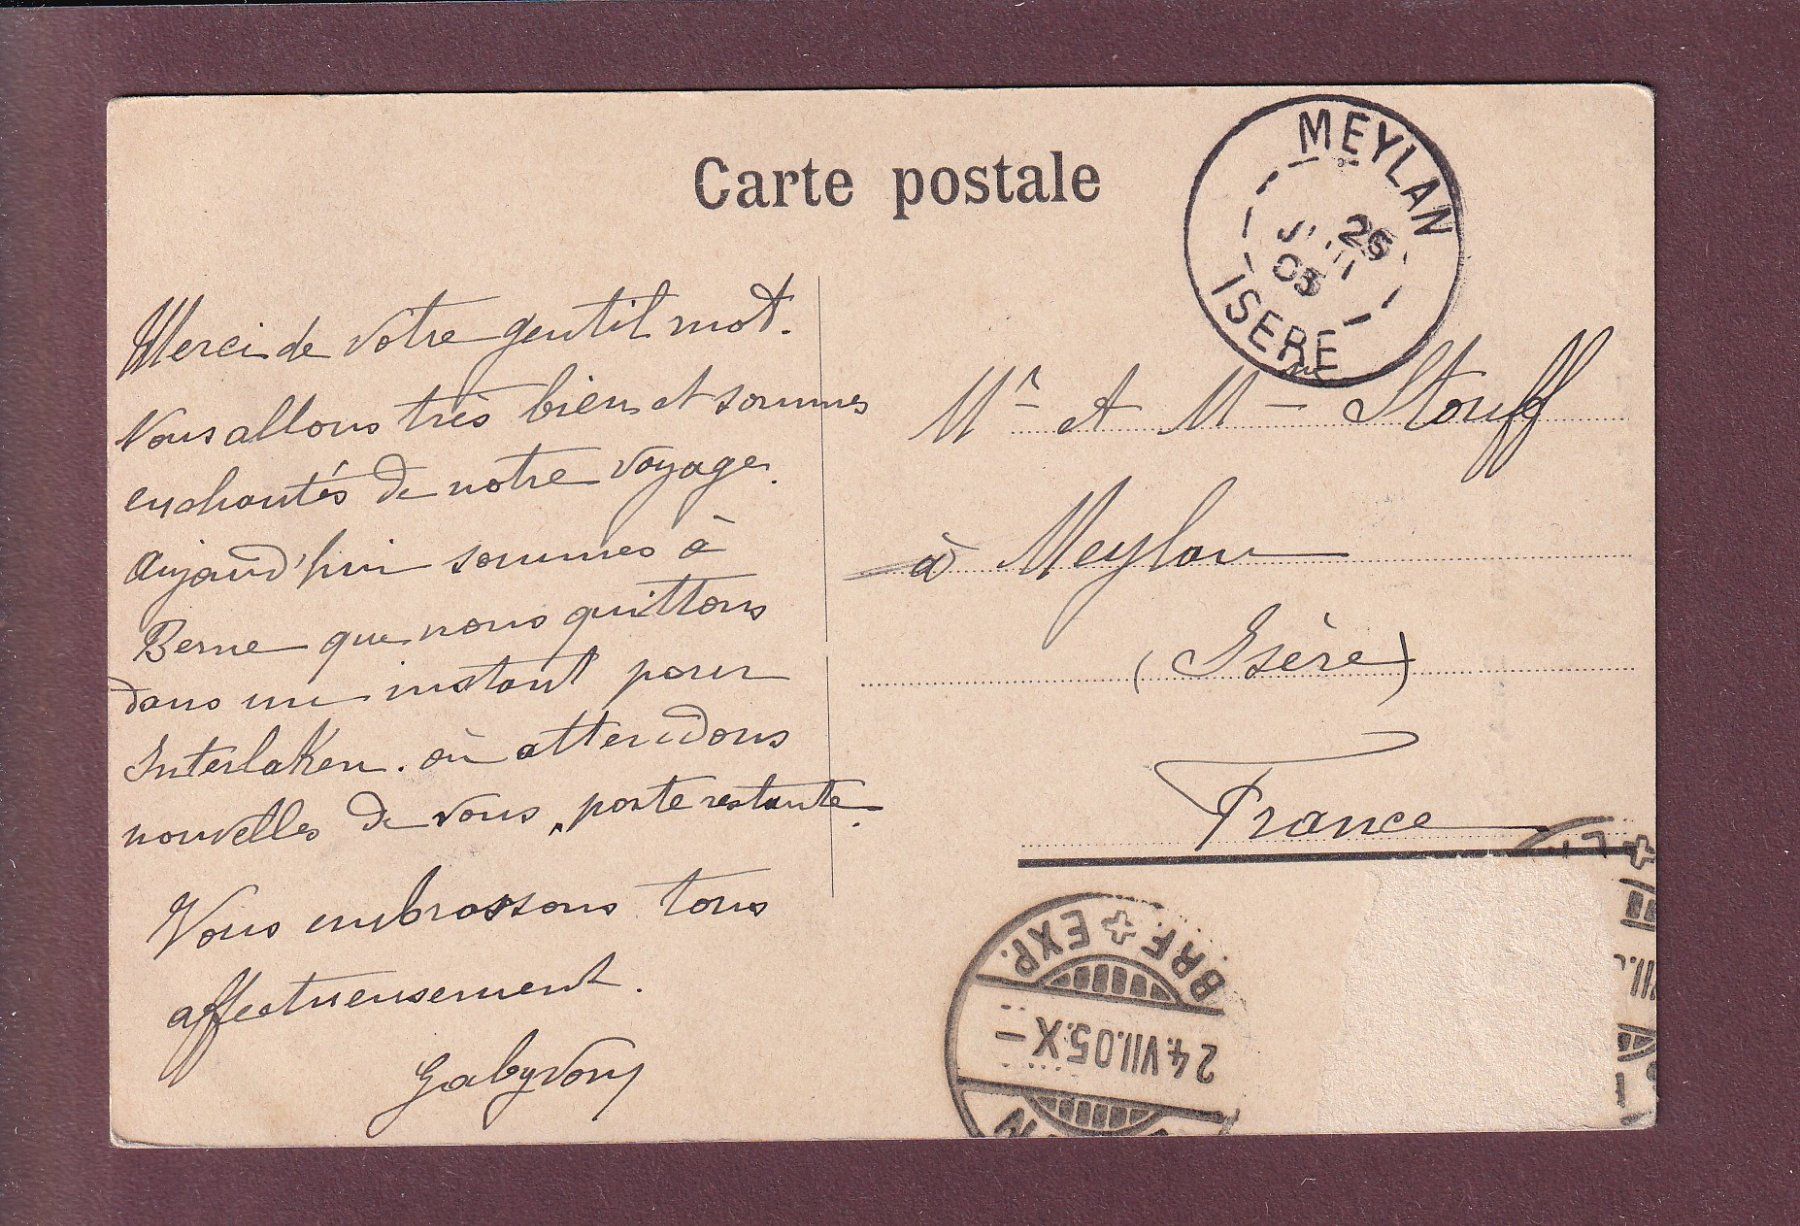 Carte postale
MEYLAN
26
05
ISERE
Merci de votre gentil mot.
Nous allons très bien et sommes
enchantés de notre voyage.
Aujourd'hui sommes à
Berne que nous quittons
dans un instant pour
Interlaken. où attendons
nouvelles de vous, poste restante.
Vous embrassons tous
affectueusement.
Mr et Mme Stouff
à Meylan
(Isère)
France
BRF + EXP.
24.VII.05.X–